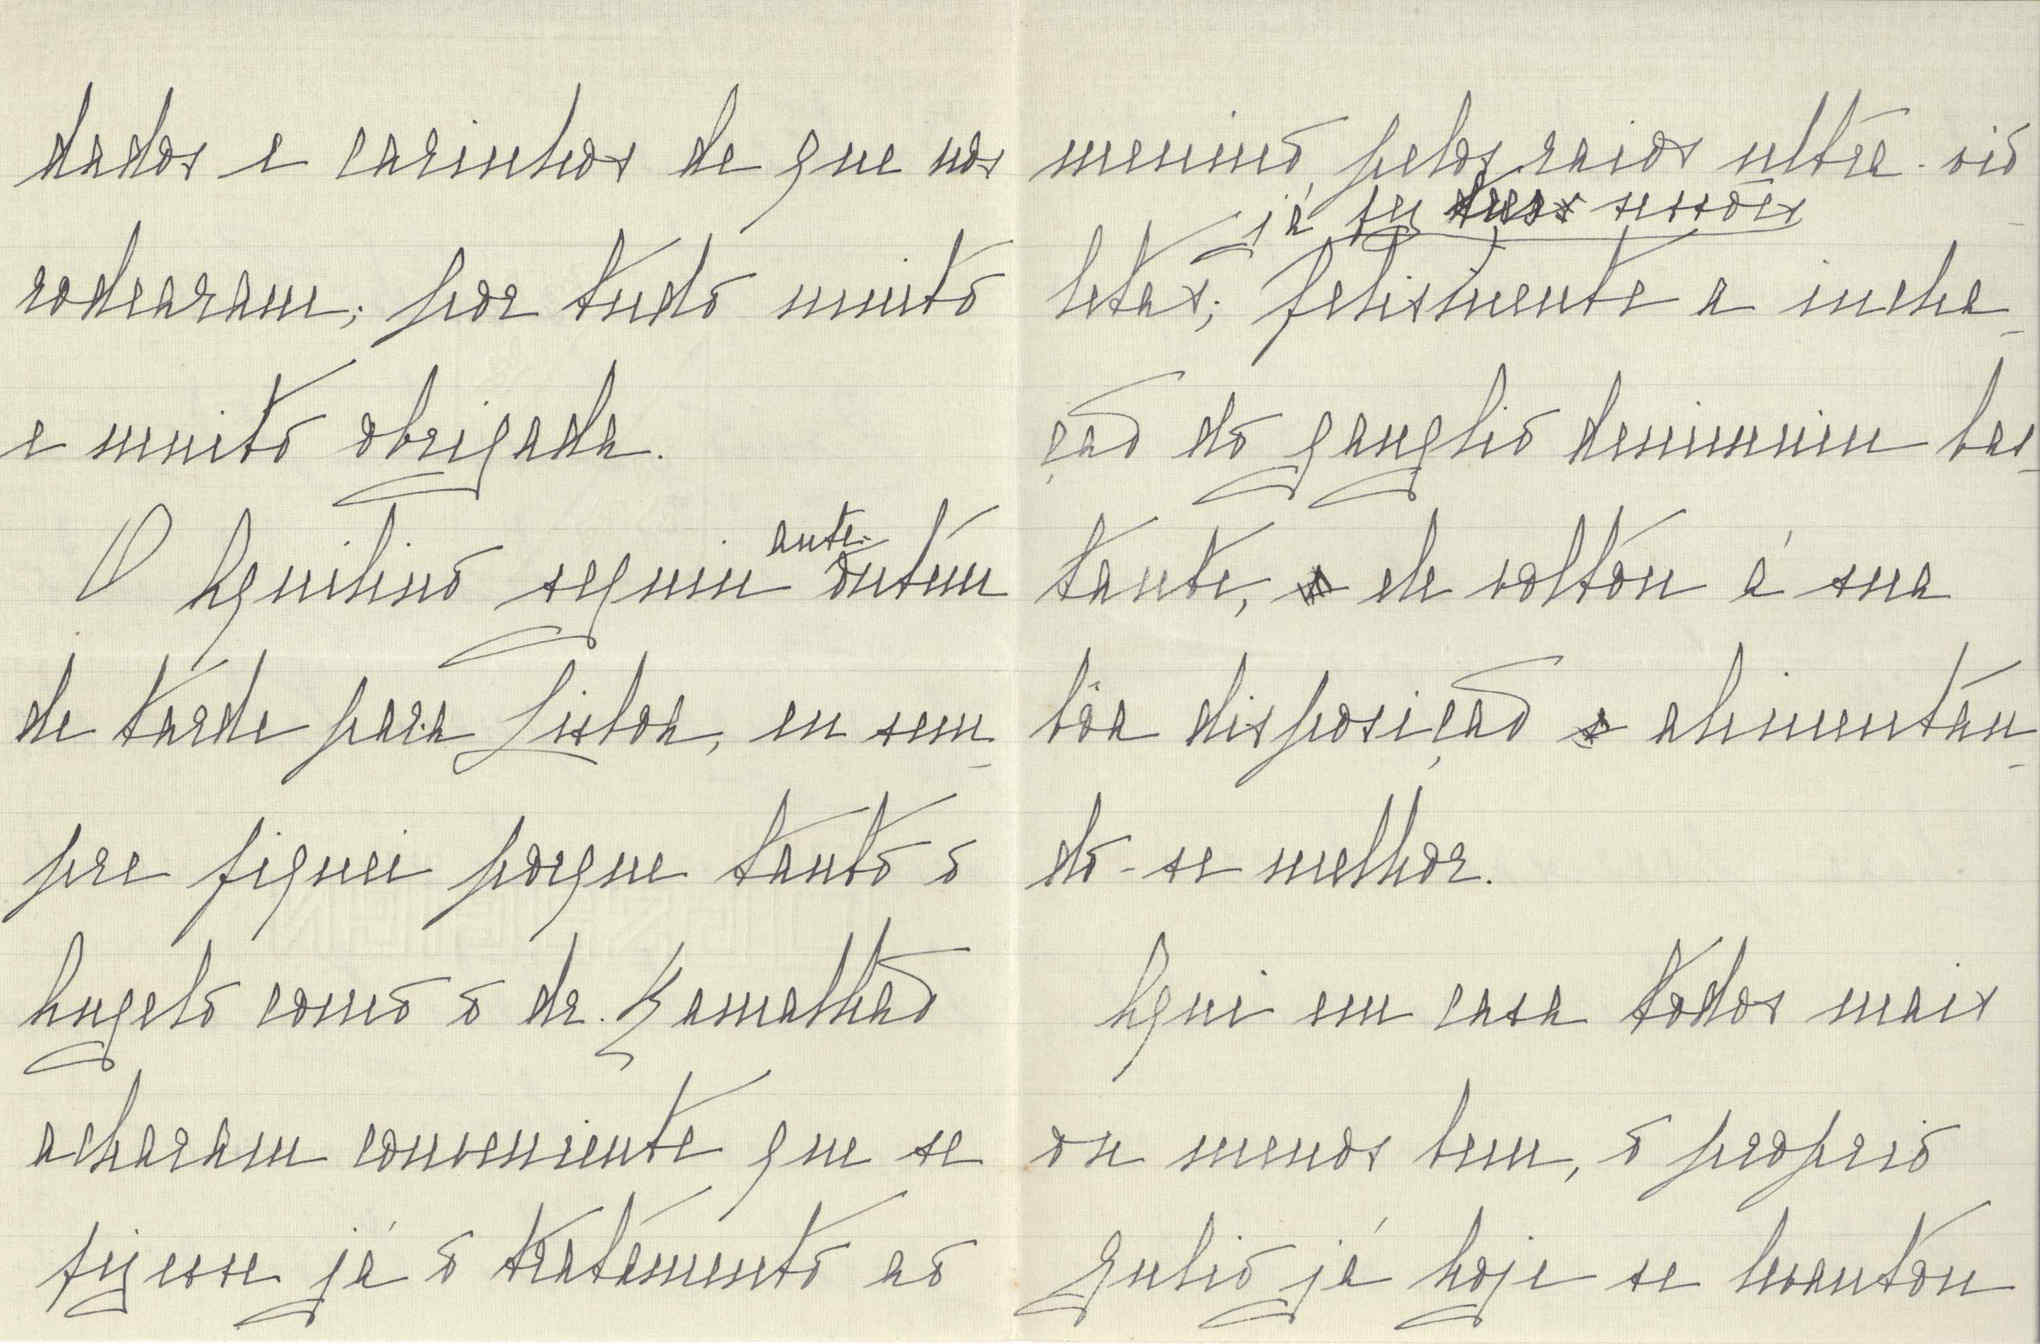 dados e carinhos de que nos
rodearam; por tudo muito
e muito obrigada.
O Aquilino seguiu ante-ontem
de tarde para Lisboa, eu sem-
pre fiquei porque tanto o
Angelo como o dr. Ramalhão
acharam conveniente que se
fizesse já o tratamento ao
menino pelos raios ultra-vio-
já fez duas sessões
letas; felismente a incha-
ção do ganglio deniminiu bas-
tante, e ele voltou á sua
bôa disposição e alimentan-
do-se melhor.
Aqui em casa todos mais
ou menos bem, o proprio
Julio já hoje se levantou